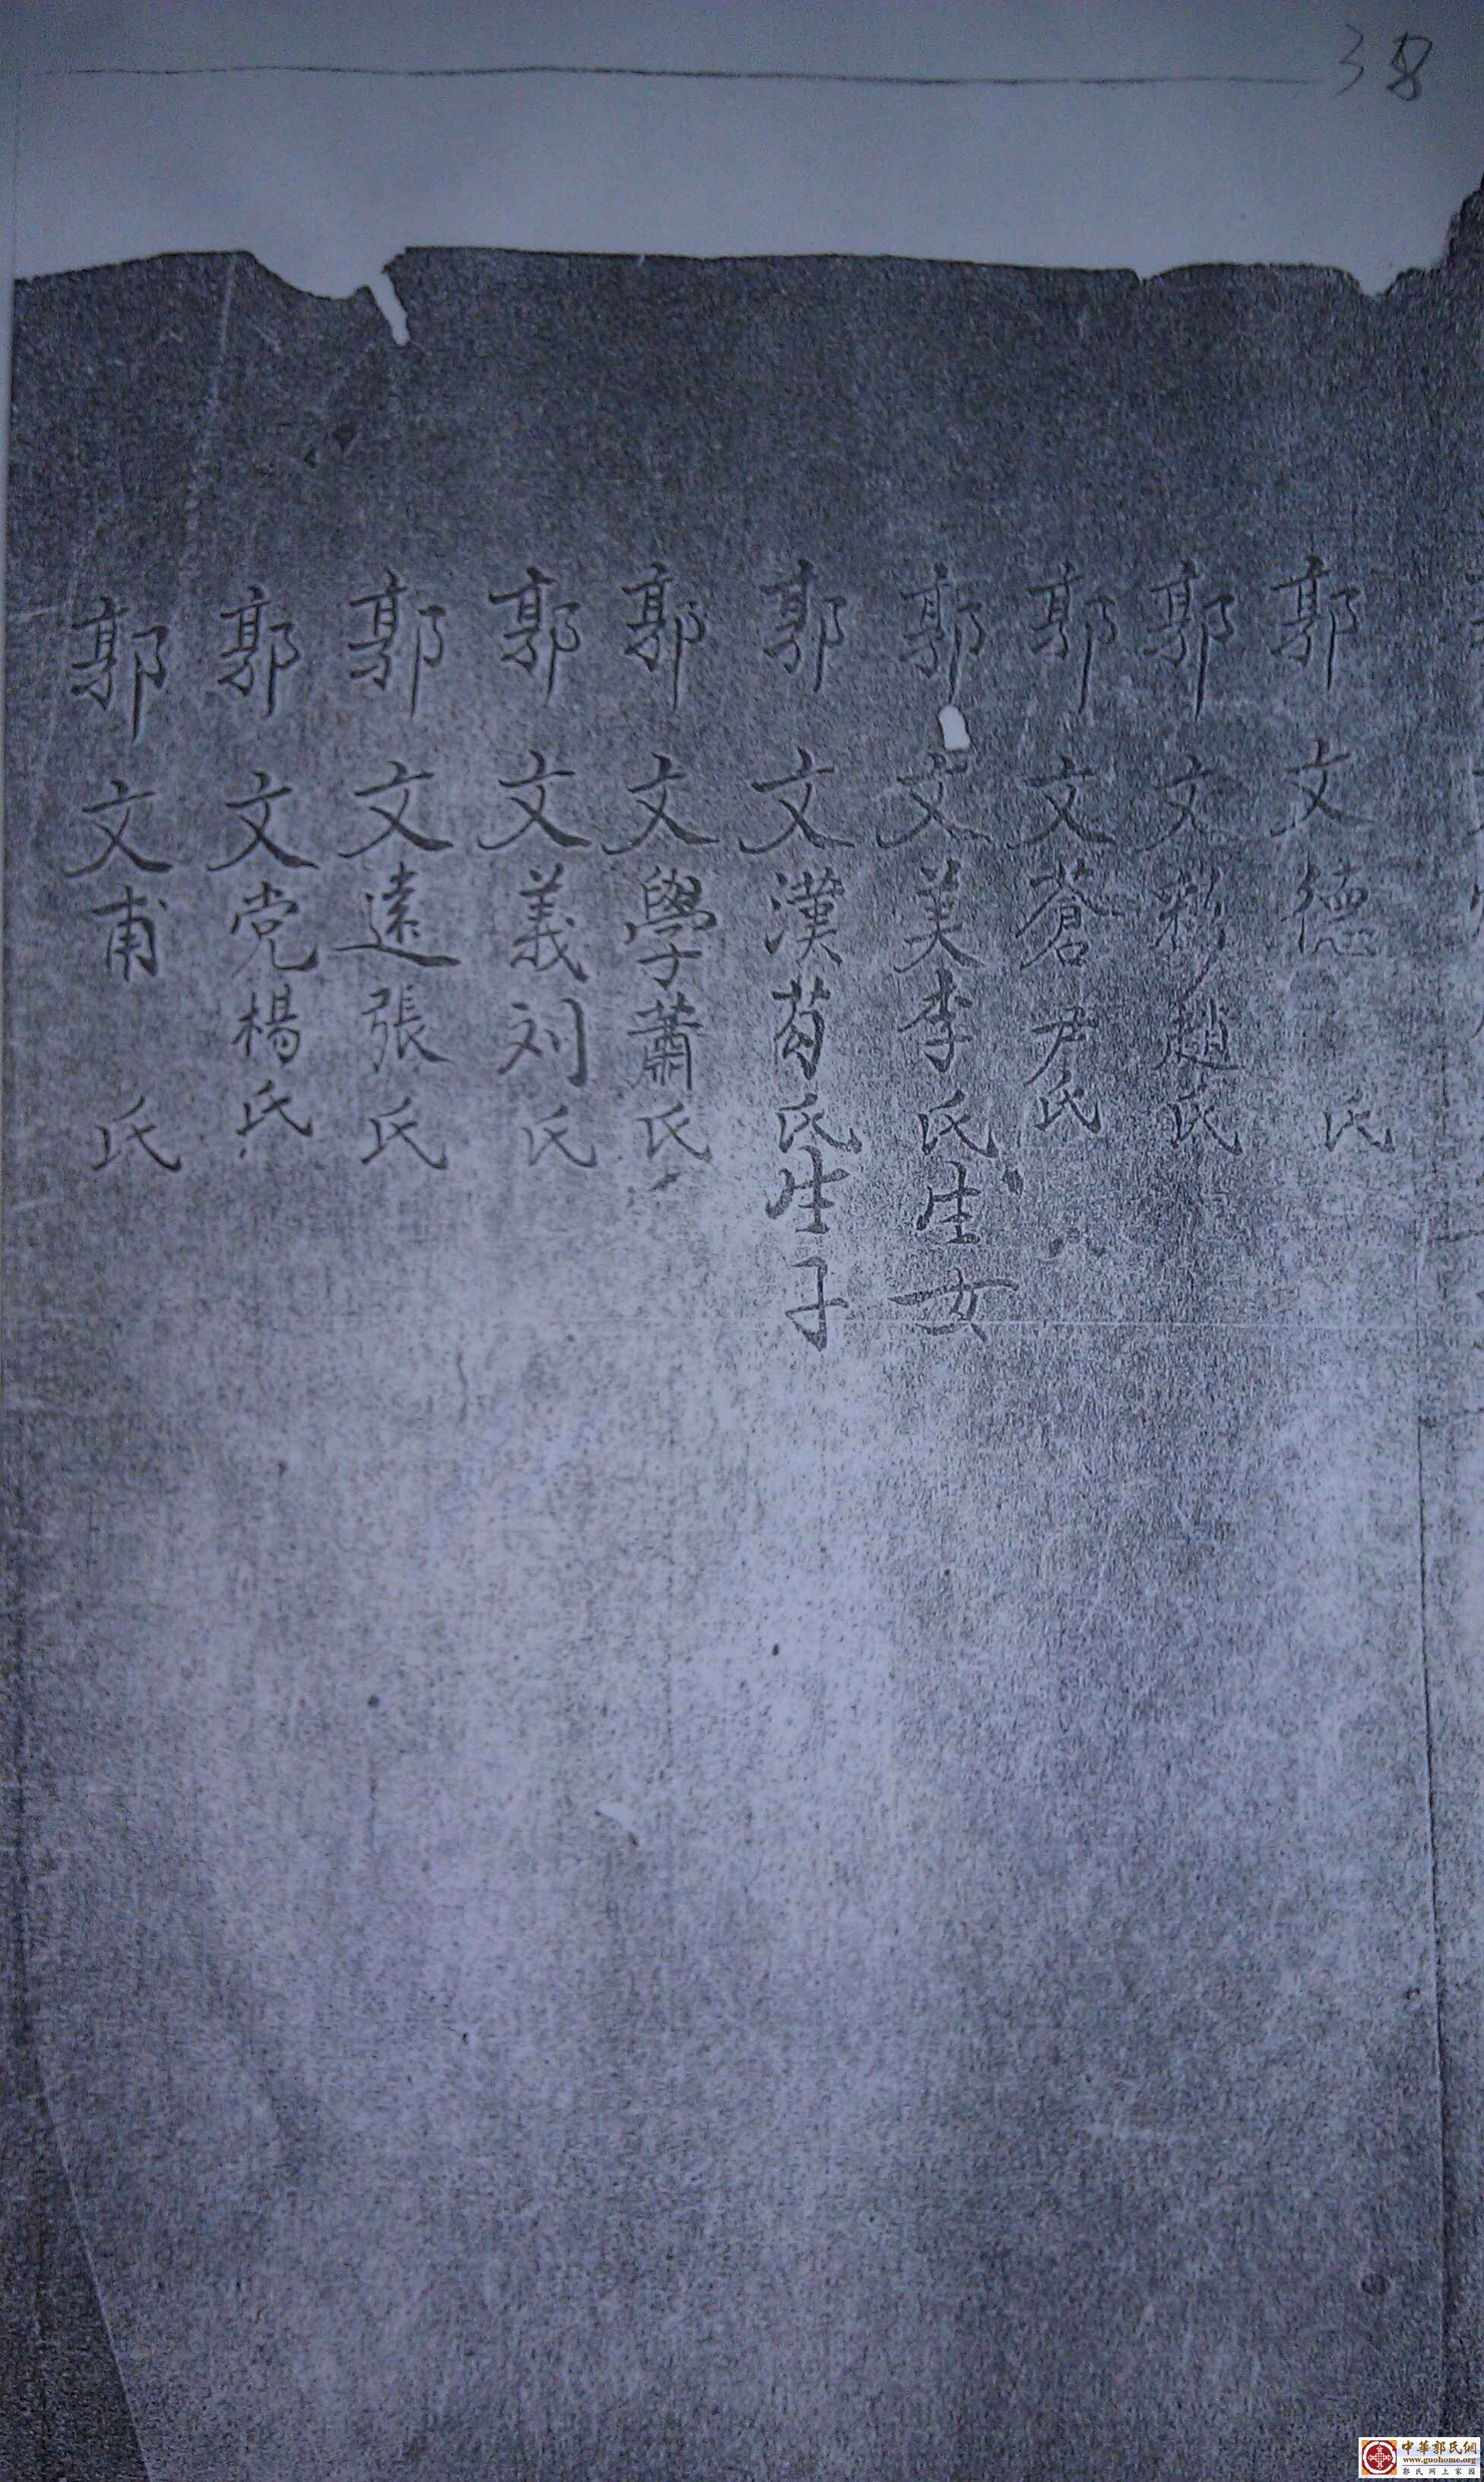 38
郭文德 氏
郭文彩趙氏
郭文蒼尹氏
郭文美李氏生女
郭文漢苟氏生子
郭文學蕭氏
郭文義刘氏
郭文遠張氏
郭文党楊氏
郭文甫 氏
中華郭氏網
www.guohome.org
郭氏网上家园